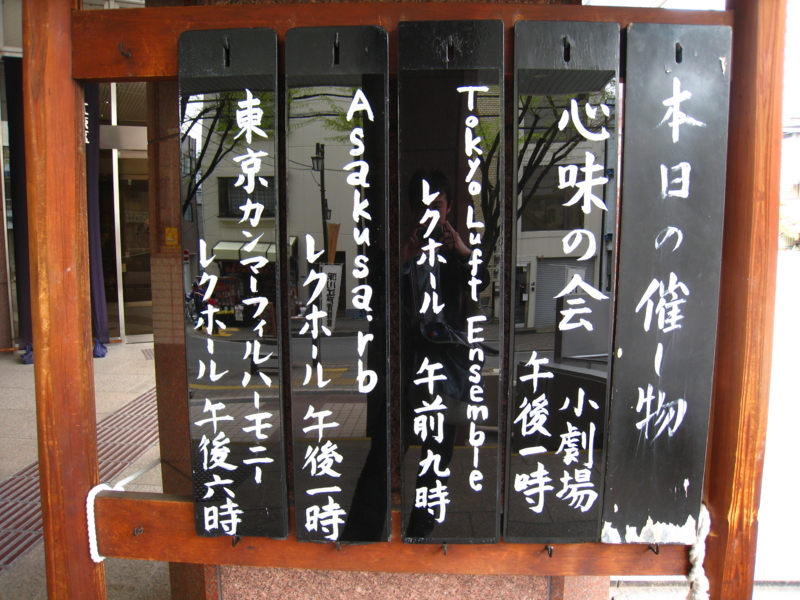 本日の催し物
心味の会
小劇場
午後一時
Tokyo Luft Ensemble
レクホール 午前九時
Asakusa.rb
レクホール 午後一時
東京カンマーフィルハーモニー
レクホール 午後六時